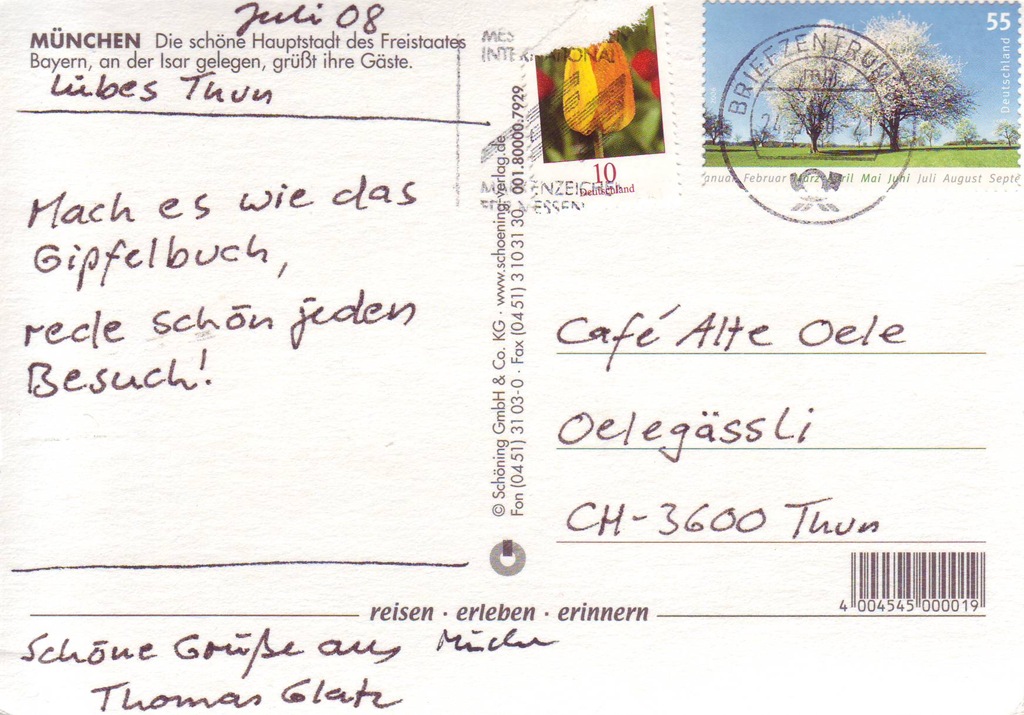 Juli 08
MÜNCHEN Die schöne Hauptstadt des Freistaates
Bayern, an der Isar gelegen, grüßt ihre Gäste.
Liebes Thun
Mach es wie das
Gipfelbuch,
rede schön jeden
Besuch!
Schöne Grüße aus
Thomas Glatz
reisen · erleben · erinnern
© Schöning GmbH & Co. KG · www.schoening-verlag.de
Fon (04 51) 31 03-0 · Fax (04 51) 3 10 31 30 001.80000.7929
10
Deutschland
55
Deutschland
Januar Februar März April Mai Juni Juli August Septe
BRIEFZENTRUM
INTERNATIONAL
Café Alte Oele
Oelegässli
CH-3600 Thun
4 004545 000019